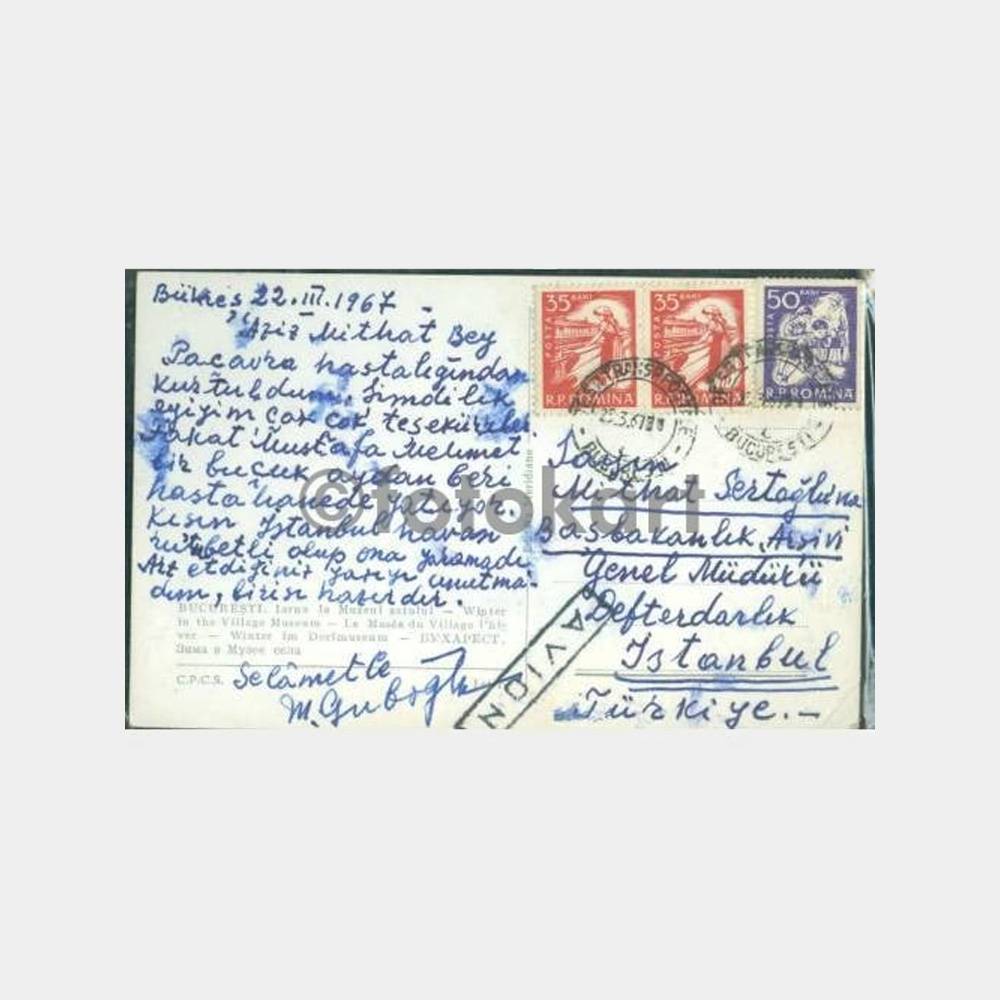 Bükreş 22.III.1967 -
Aziz Mithat Bey
Paçavra hastalığından
Kurtuldum. Şimdilik
eyiyim çok çok teşekürler
Fakat Mustafa Mehmet
bir buçuk aydan beri
hastahanede yatıyor.
Kışın İstanbul havası
rütubetli olup ona yaramadı
Arz etdiğiniz yazıyı unutma-
dım, birisi hazırdır.
BUCUREŞTI. Iarna la Muzeul satului — Winter
in the Village Museum — Le Musée du Village l'hi-
ver — Winter im Dorfmuseum — БУХАРЕСТ.
Зима в Музее села
C.P.C.S.
Selâmetle
M. Guboglu
Meridiane
35 BANI
POSTA
R.P.ROMINA
35 BANI
POSTA
R.P.ROMINA
50 BANI
POSTA
R.P.ROMINA
BUCUREŞTI
Sayın
Mithat Sertoğluna
Başbakanlık Arşivi
Genel Müdürü
Defterdarlık
İstanbul
Türkiye. -
PAR AVION
©fotokart